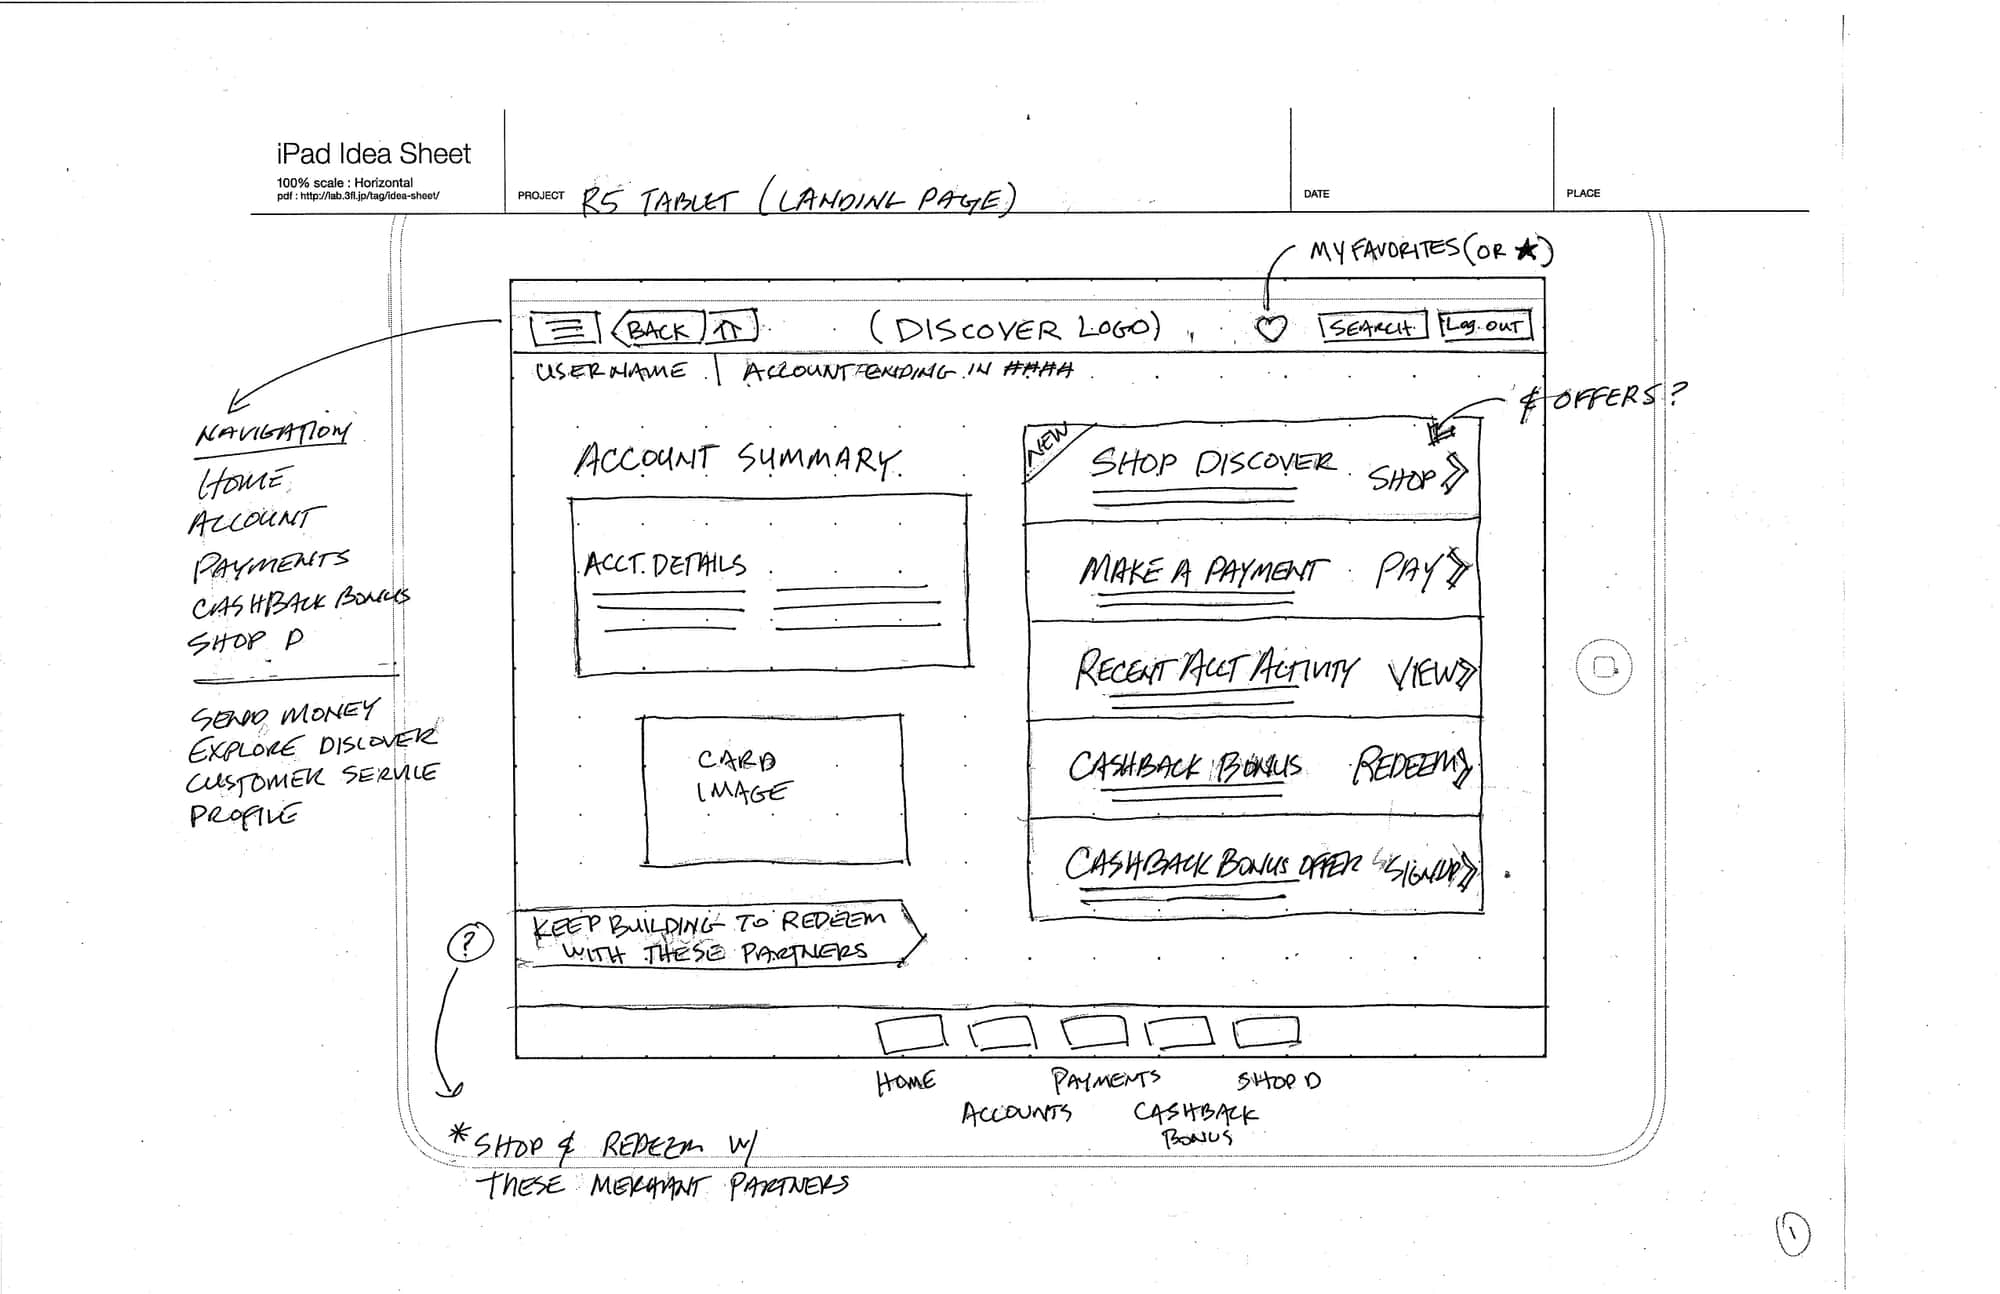 iPad Idea Sheet
100% scale : Horizontal
pdf : http://lab.3fl.jp/tag/idea-sheet/
PROJECT R5 TABLET (LANDING PAGE)
DATE
PLACE
MY FAVORITES (OR ★)
BACK
(DISCOVER LOGO)
SEARCH
LOG OUT
USERNAME | ACCOUNT ENDING IN ####
& OFFERS?
NAVIGATION
HOME
ACCOUNT
PAYMENTS
CASHBACK BONUS
SHOP D
SEND MONEY
EXPLORE DISCOVER
CUSTOMER SERVICE
PROFILE
ACCOUNT SUMMARY
ACCT. DETAILS
CARD
IMAGE
KEEP BUILDING TO REDEEM
WITH THESE PARTNERS
NEW
SHOP DISCOVER
SHOP
MAKE A PAYMENT
PAY
RECENT ACCT ACTIVITY
VIEW
CASHBACK BONUS
REDEEM
CASHBACK BONUS OFFER
SIGNUP
?
HOME
ACCOUNTS
PAYMENTS
CASHBACK
BONUS
SHOP D
* SHOP & REDEEM W/
THESE MERCHANT PARTNERS
1